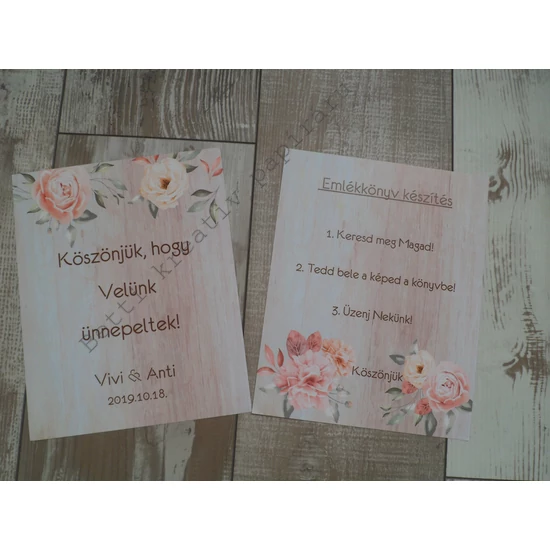 Köszönjük, hogy
Velünk
ünnepeltek!
Vivi & Anti
2019.10.18.
Emlékkönyv készítés
1. Keresd meg Magad!
2. Tedd bele a képed a könyvbe!
3. Üzenj Nekünk!
Köszönjük
kreatív papírart